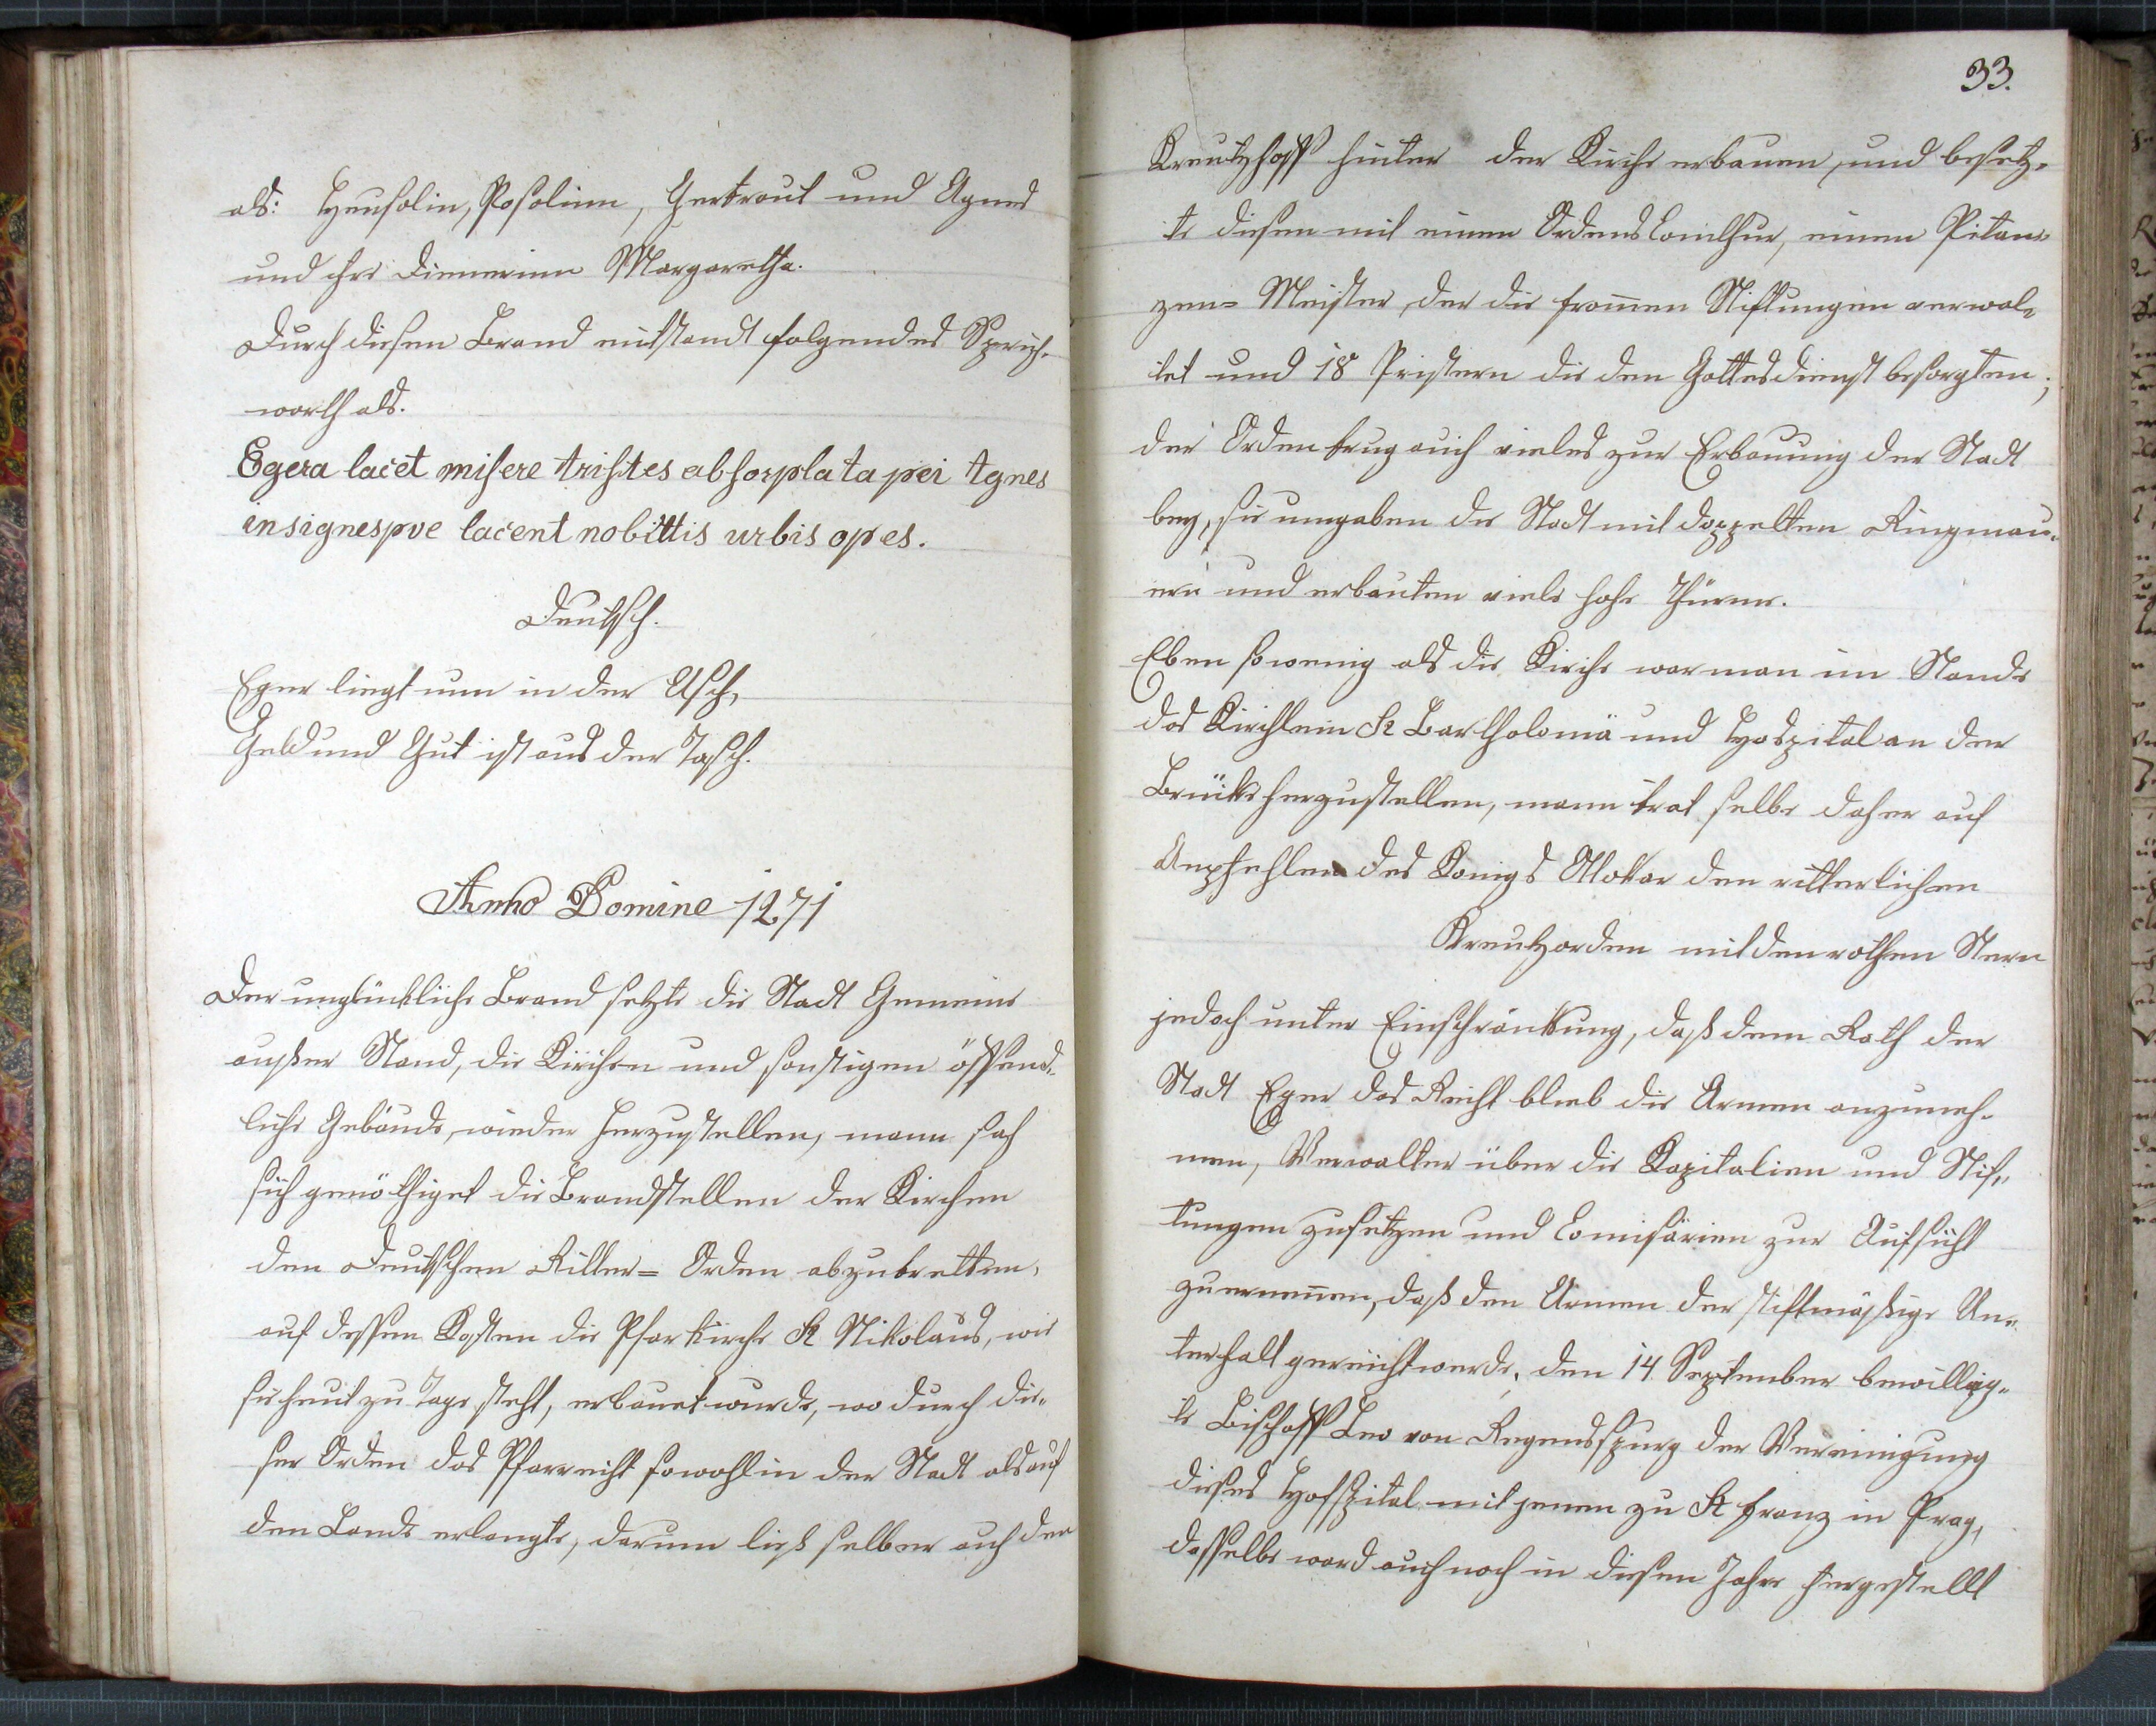 als: Heusolin, Posolinn, Gertraut und Agnes
und ihre Dienerinn Margaretha.
Durch diesen Brand entstandt folgendes Sprich-
worth als.
Egera lacet misere trishtes absorplata pei tgnes
insignespve lacent nobittis urbis opes.
Deutsch.
Eger liegt nun in der Asch,
Geld und Gut ist aus der Tasch.
Anno Domine 1271
Der unglückliche Brand setzte die Stadt Gemeine
außer Stand, die Kirchen und sonstigen öffend-
liche Gebäude, wieder herzustellen, mann sah
sich genöthiget die Brandstellen der Kirchen
den deutschen Ritter= Orden abzutretten,
auf dessen Kosten die Pfarkirche St Nikolaus, wie
sie heut zu Tage steht, erbauet wurde, wo durch die-
ser Orden das Pfarrecht sowohl in der Stadt als auf
den Lande erlangte, darum ließ selber auch den
33.
Kreutzhoff hinter der Kirche erbauen, und besetz-
te diesen mit einen Ordens Comthur, einen Pitan-
zen= Meister, der die from̄en Stiftungen verwal-
tet und 18 Pristern die den Gottesdienst besorgten;
der Orden trug auch vieles zur Erbauung der Stadt
bey, sie umgaben die Stadt mit doppelten Ringmau-
ern und erbauten viele hohe Thürme.
Eben so wenig als die Kirche war man im Stande
das Kirchlein St Bartholomä und Hospital an der
Brücke herzustellen, mann trat selbe daher auf
Anpfehlen des Konigs Ottokar den ritterlichen
Kreutzorden mit den rothen Stern
jedoch unter Einschränkung, daß dem Rath der
Stadt Eger das Recht blieb die Armen anzuneh-
men, Verwalter über die Kapitalien und Stif-
tungen zusetzen und Comisärien zur Aufsicht
zuernen̄en, daß den Armen der stiftmäßige Un-
terhalt gereicht werde, den 14 September bewillig-
te Bischoff Leo von Regendspurg der Vereinigung
dieses Hofspital mit jenen zu St Franz in Prag,
dasselbe ward auch noch in diesen Jahre hergestellt